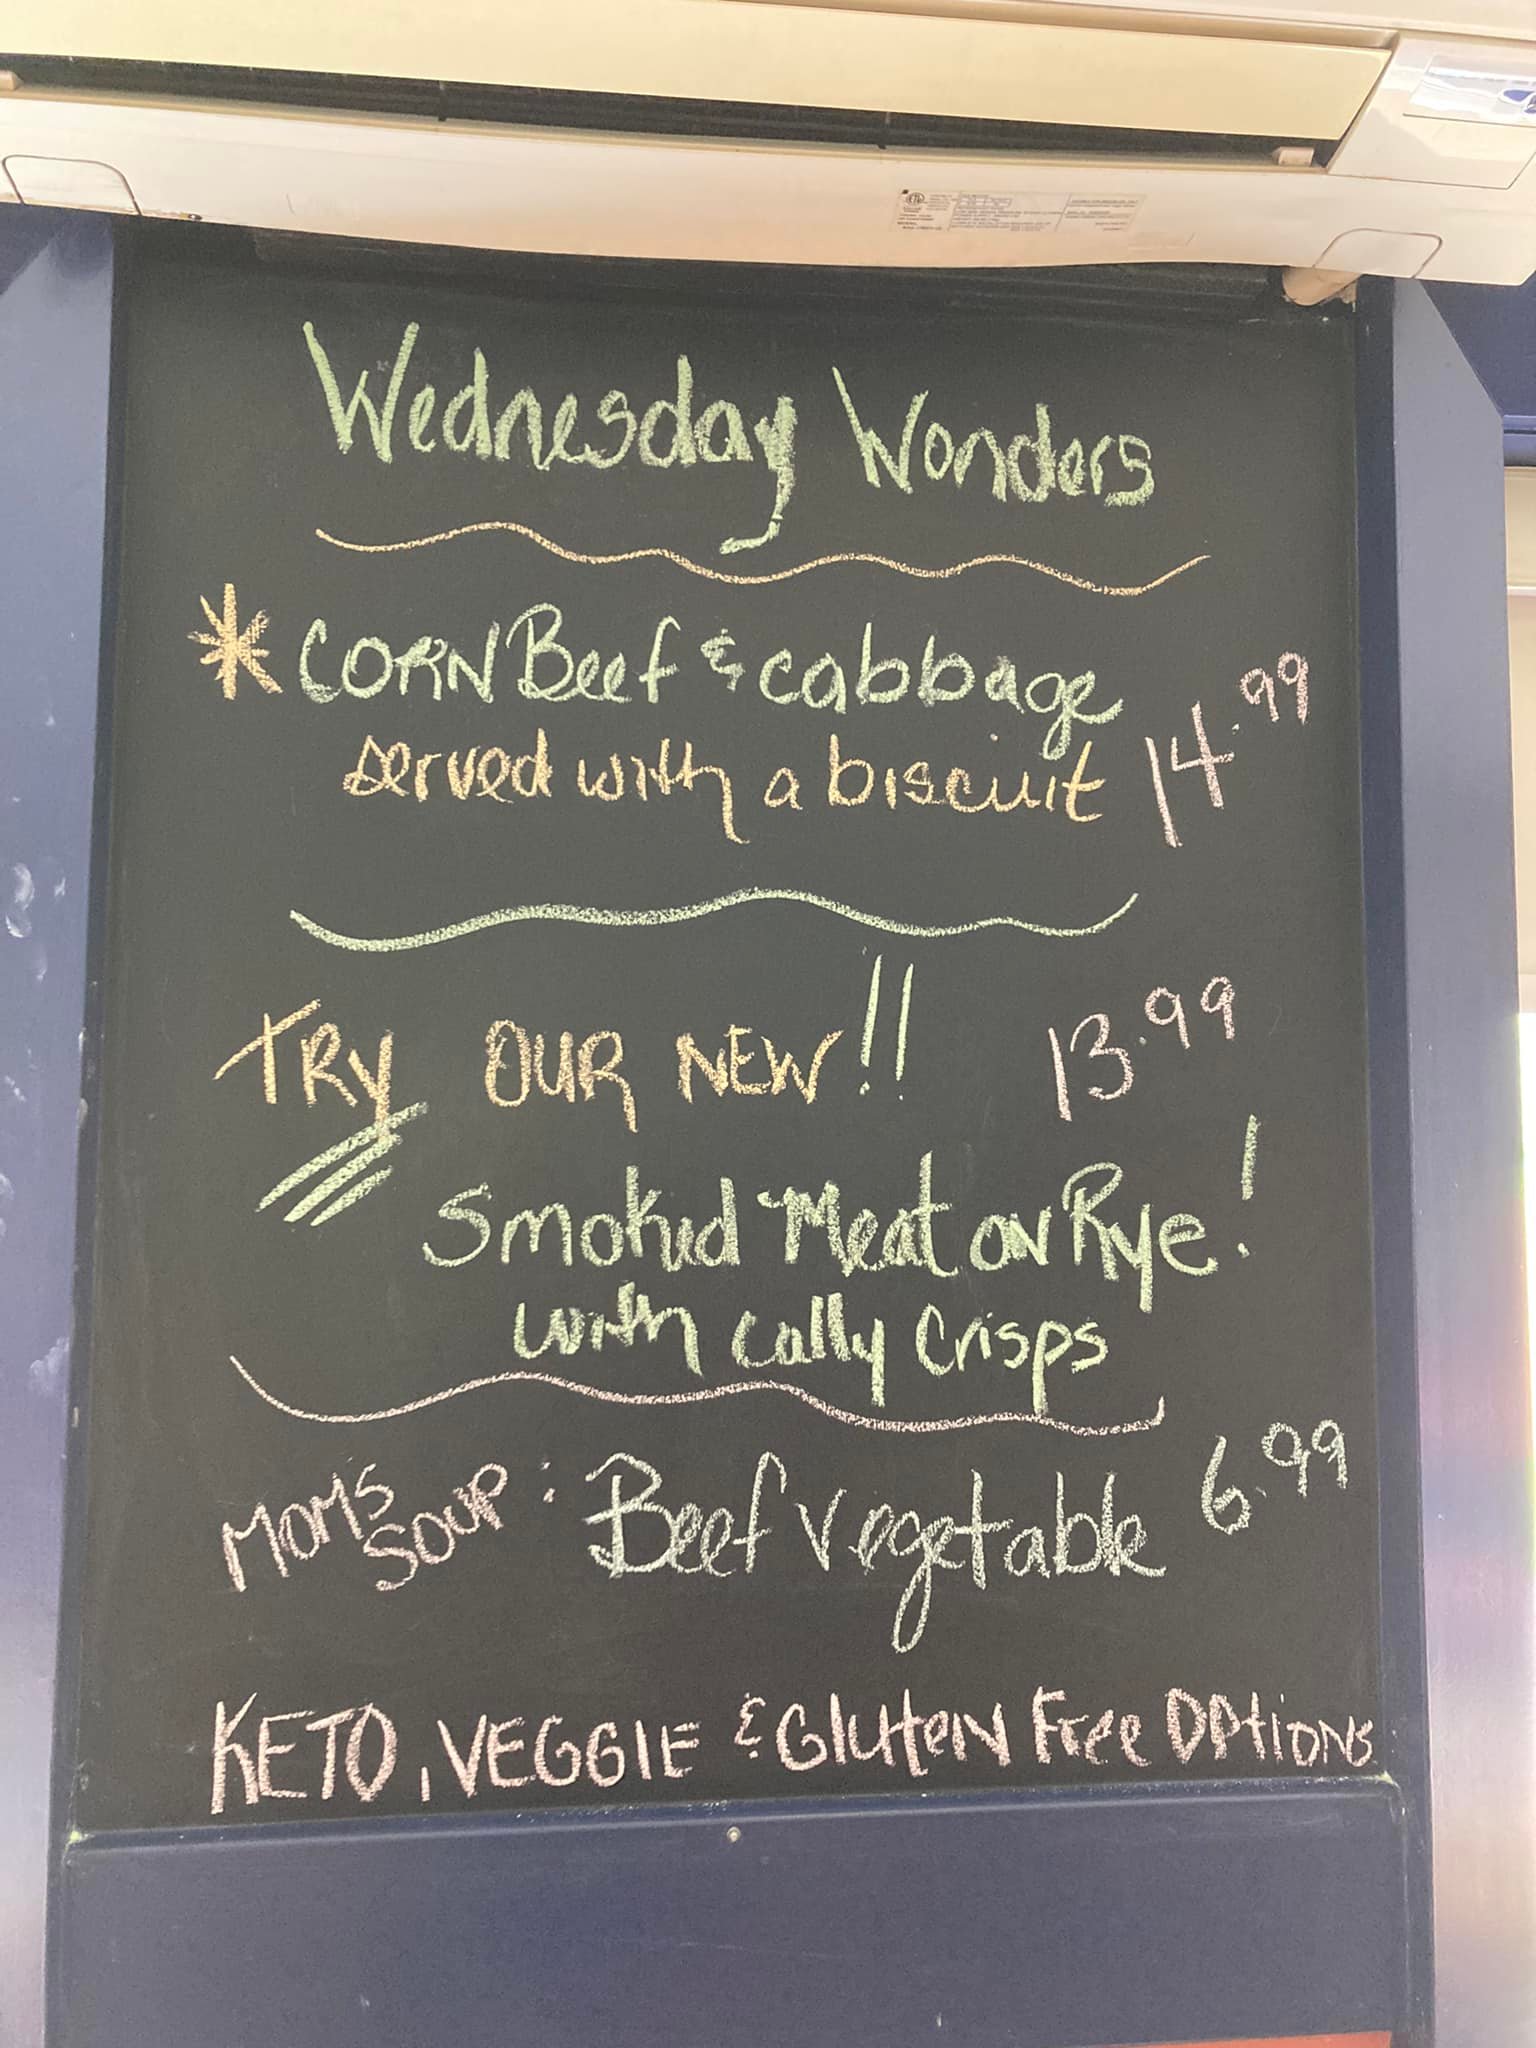 Wednesday Wonders
* CORN Beef & cabbage
served with a biscuit 14.99
TRY OUR NEW!! 13.99
Smoked Meat on Rye!
with Cally Crisps
MOM'S SOUP: Beef Vegetable 6.99
KETO, VEGGIE & Gluten Free Options